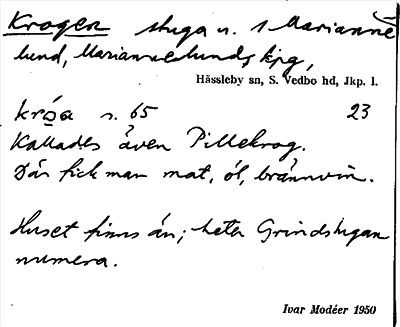 Krogen stuga u. s Marianne
lund, Mariannelunds kpg,
Hässleby sn, S. Vedbo hd, Jkp. l.
króa n. 65 23
Kallades även Pillekrog.
Där fick man mat, öl, brännvin.
Huset finns än; heter Grindstugan
numera.
Ivar Modéer 1950